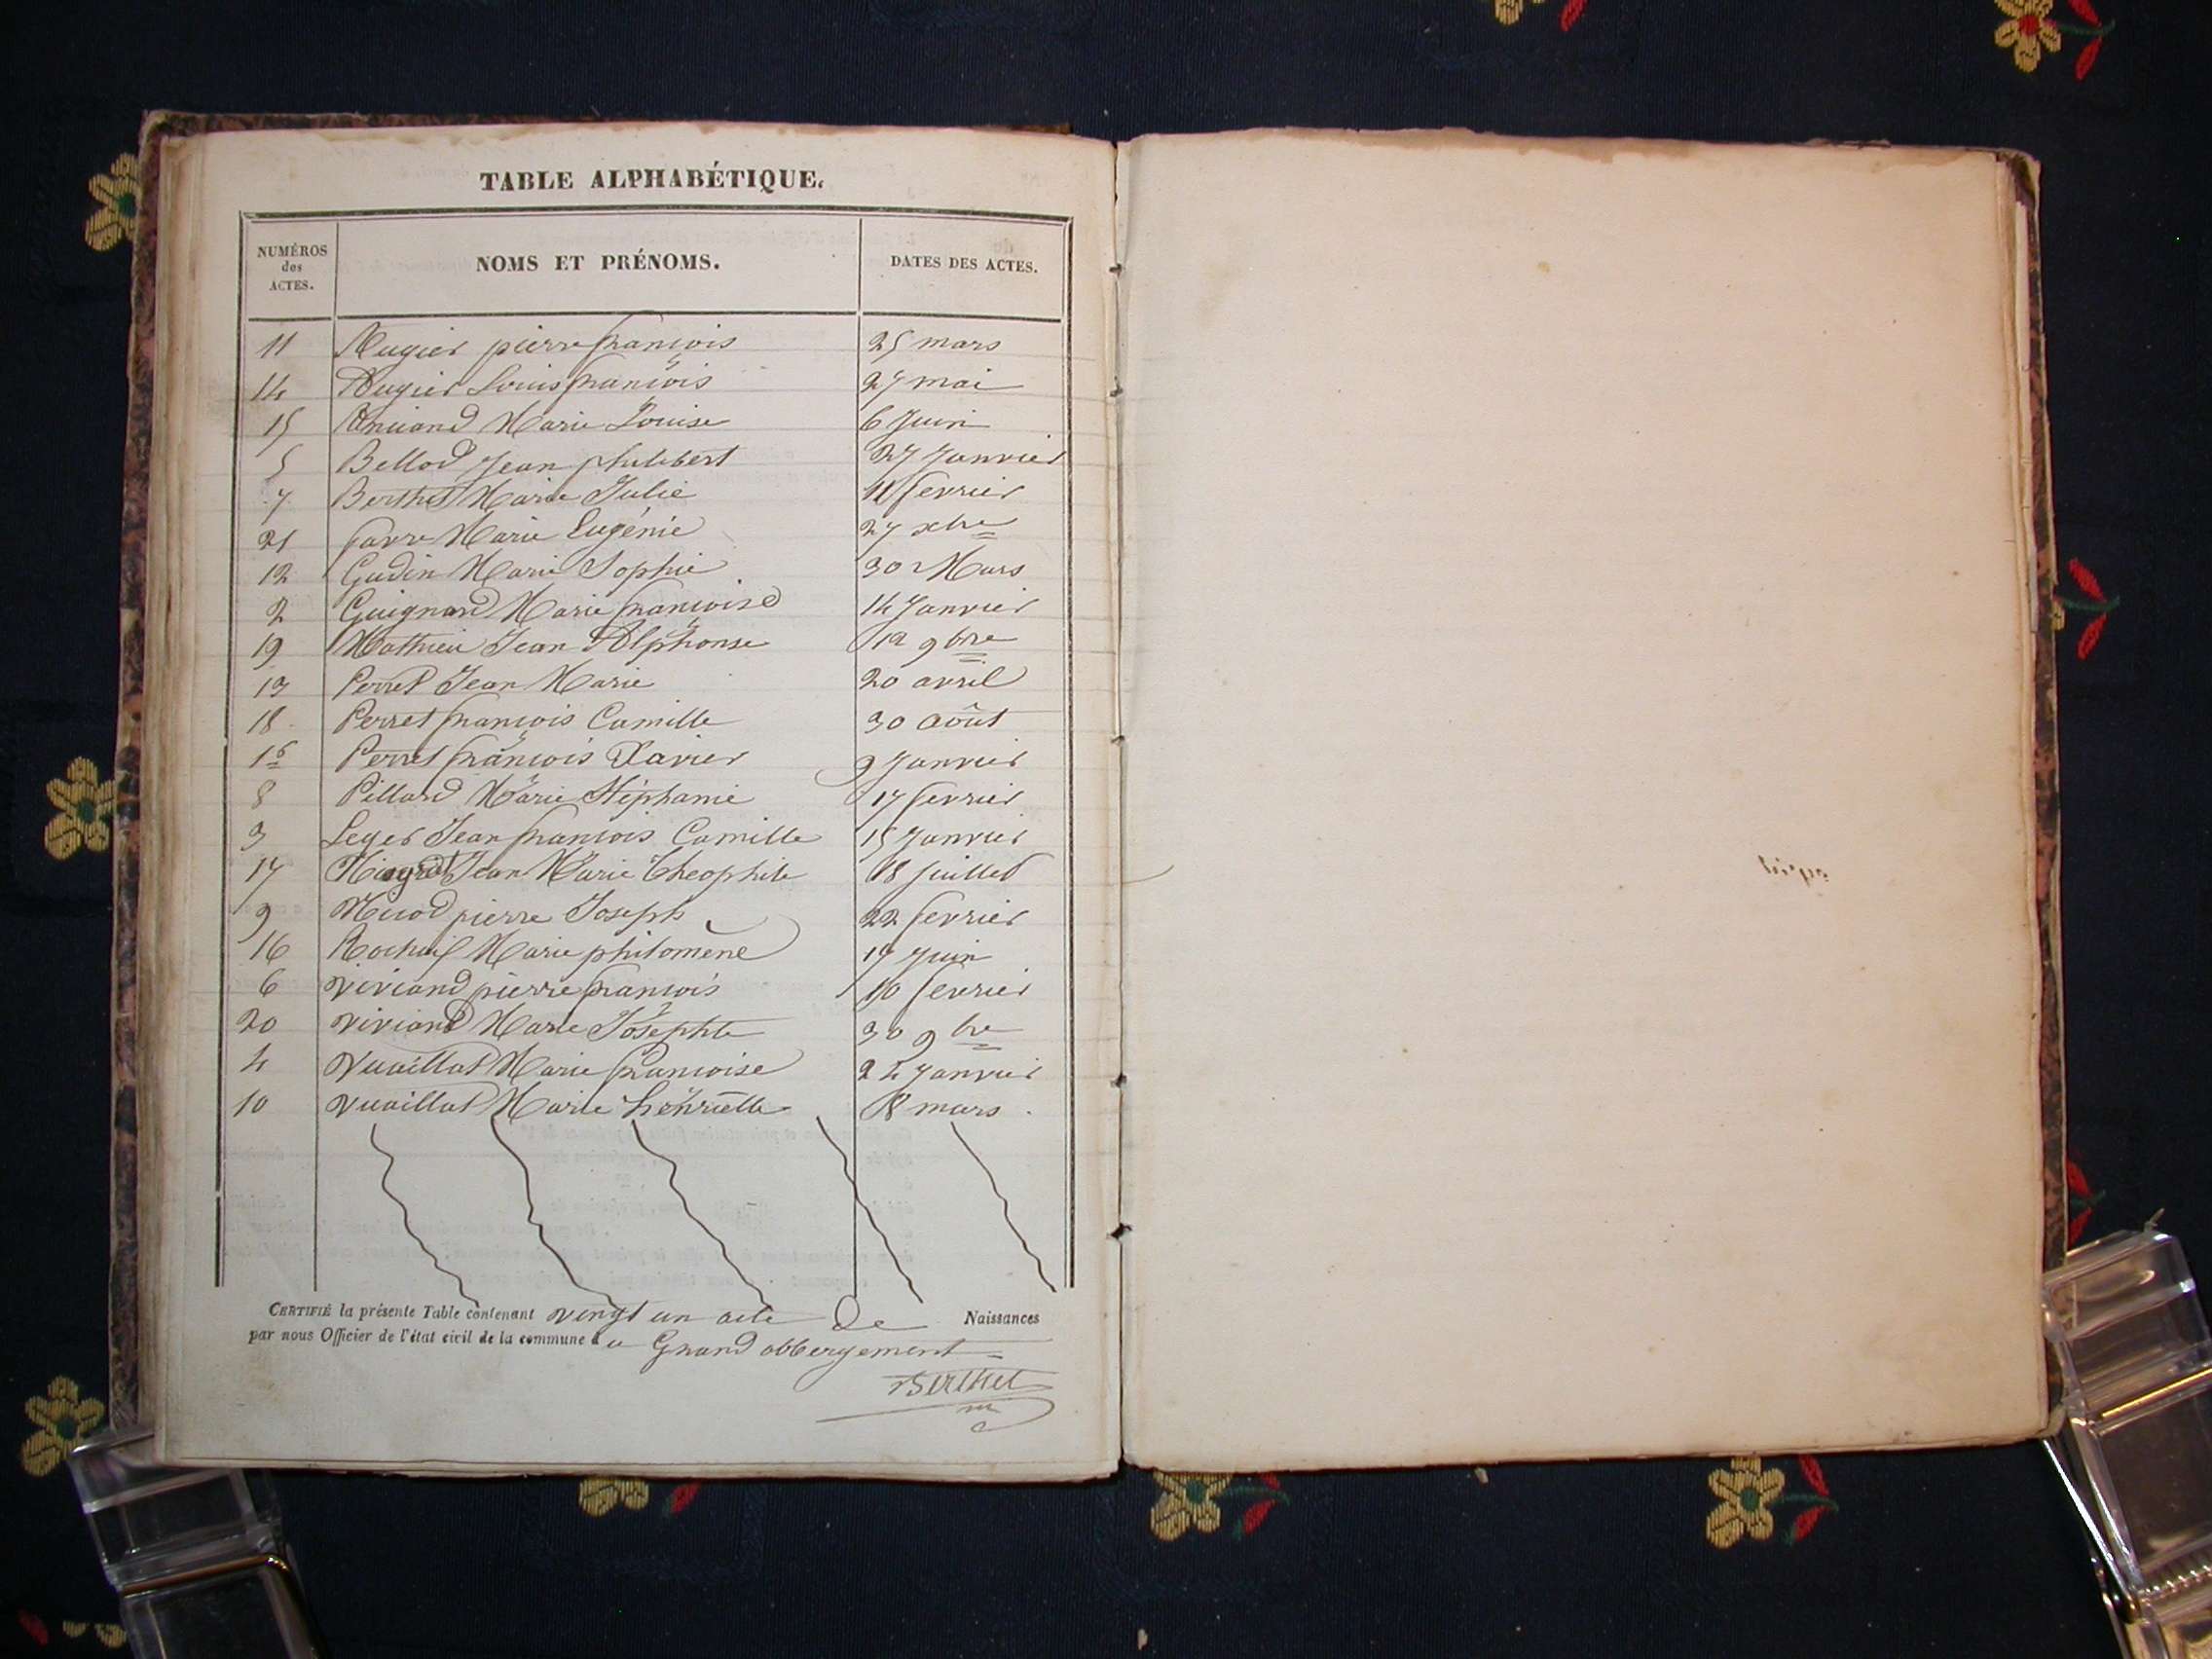 TABLE ALPHABÉTIQUE.
NUMÉROS des ACTES. NOMS ET PRÉNOMS. DATES DES ACTES.
11 Augier pierre françois 25 mars
14 Augier Louis françois 27 mai
15 Marie Louise 6 Juin
5 Bellod Jean philibert 27 Janvier
7 Berthet Marie Julie 11 fevrier
21 favre Marie Eugénie 27 xbre
12 Gudin Marie Sophie 30 Mars
2 Guignard Marie françoise 14 Janvier
19 Mathieu Jean Alphonse 12 9bre
13 Perret Jean Marie 20 avril
18 Perret françois Camille 30 Août
1er Perret françois Xavier 9 Janvier
8 Pillard Marie Stéphanie 17 fevrier
3 Leger Jean françois Camille 15 Janvier
17 Jean Marie Théophile 18 Juillet
9 pierre Joseph 22 fevrier
16 Marie philomène 17 Juin
6 viviand pierre françois 10 fevrier
20 viviand Marie Josephte 30 9bre
4 Vuaillat Marie françoise 24 Janvier
10 Vuaillat Marie henriette 8 mars
CERTIFIÉ la présente Table contenant vingt un acte De Naissances
par nous Officier de l'état civil de la commune du Grand abbergement
Berthet